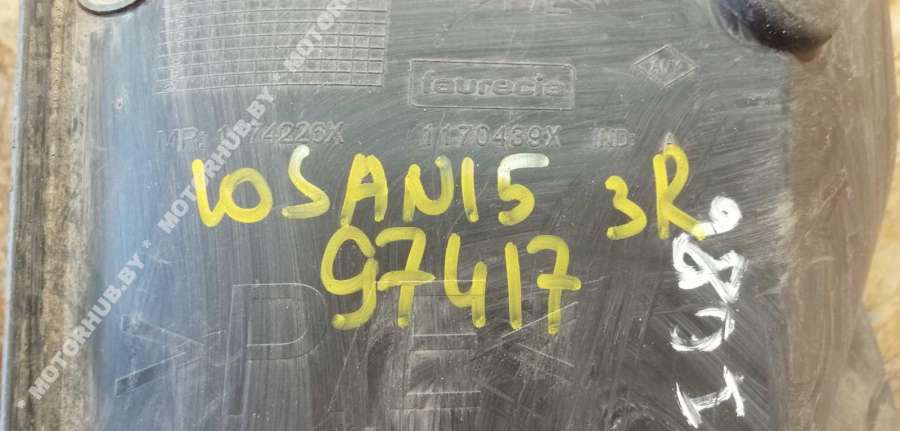 faurecia
MP: 1174226X 1170439X IND: A
LOSANI5 3R
97417
>PE<
MOTORHUB.BY * MOTORHUB.BY * MOTORHUB.BY